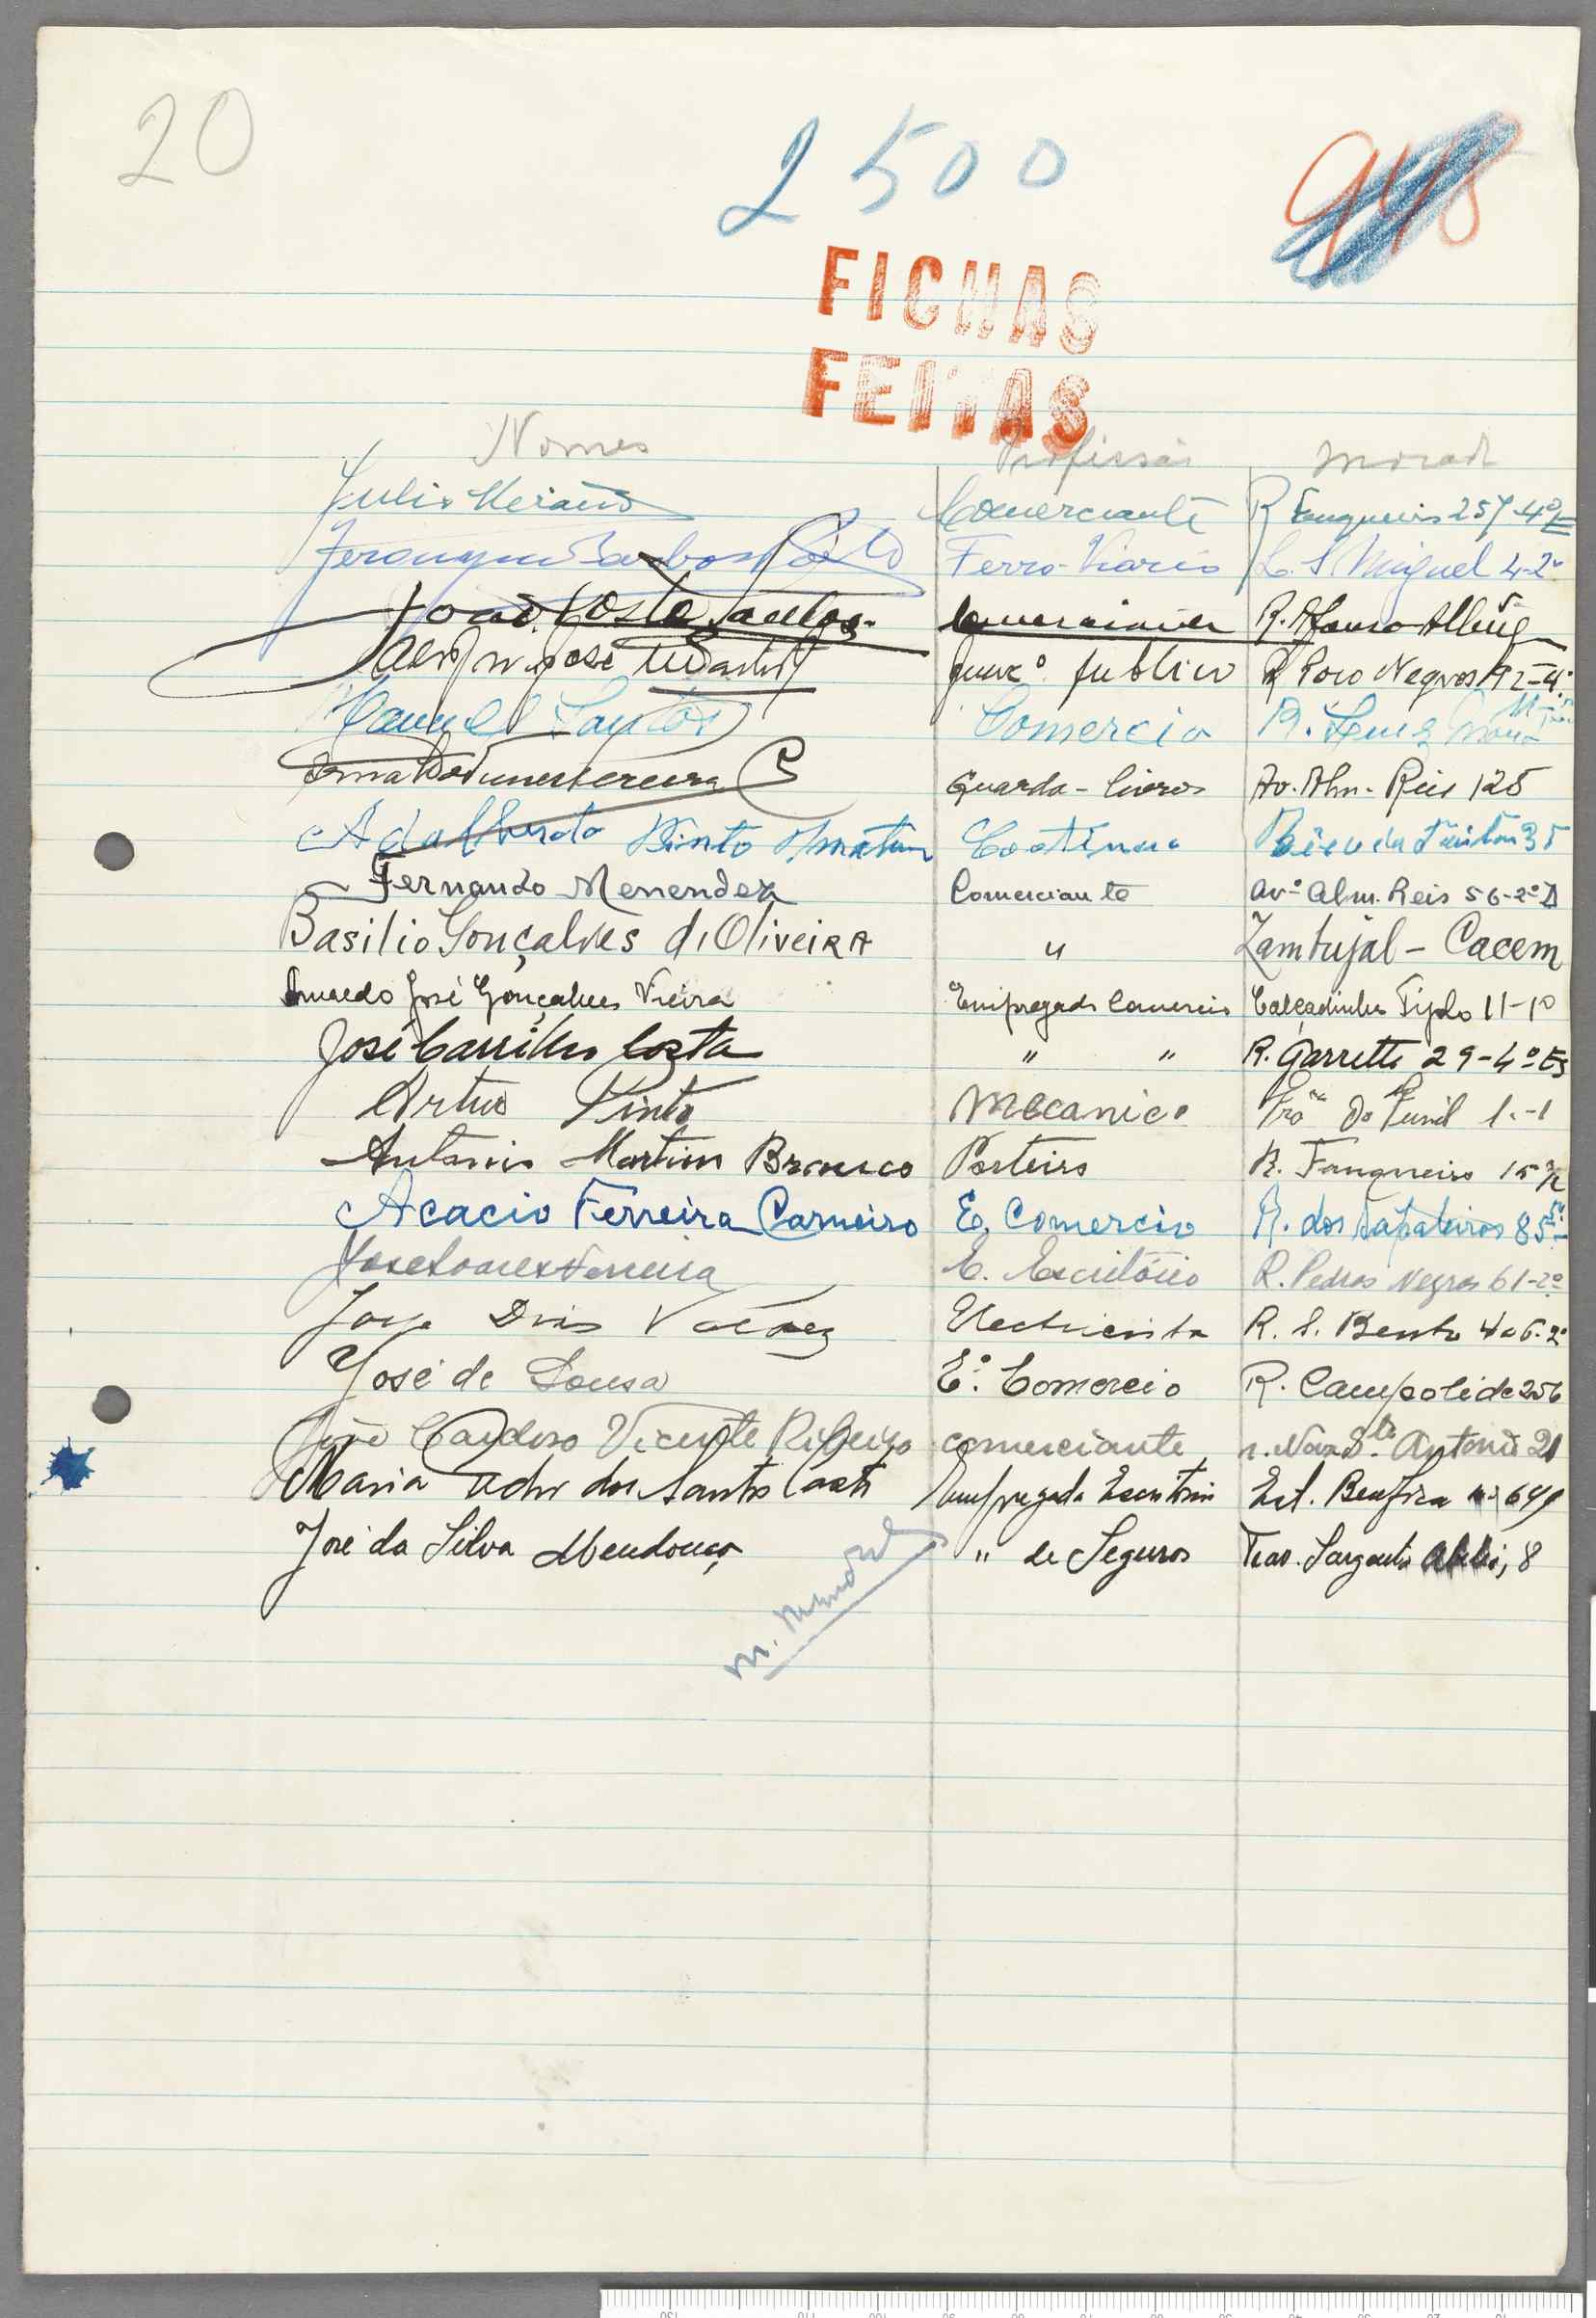 20
2500
948
FICHAS
FEITAS
Nomes Profissão Morada
Julio Comerciante R Fanqueiros 257-4º/E
Jeronymo Barbosa Ferro-Viario L. S. Miguel 4-2º
João Costa Santos R. Afonso Albuq
José funcº publico R Poço Negros 92-4º
Manuel Santos Comercio R. Luz
Guarda-livros Av. Alm. Reis 125
Adalberto Pinto Continuo Bêco da 35
Fernando Menendez Comerciante Avª Alm. Reis 56-2º D
Basilio Gonçalves d'Oliveira " Zambujal - Cacem
José Gonçalves Vieira Empregado Comercio Calçadinha Tijolo 11-1º
José Carrilho Costa " " R. Garrett 29-4º Es
Artur Pinto Mecanico Trª do Funil 1.-1
Antonio Martins Branco Porteiro R. Fanqueiros 15
Acacio Ferreira Carneiro E. Comercio R. dos Sapateiros 85 5º
José Soares Ferreira E. Escritório R. Pedras Negras 61-2º
Jorge Dias Electricista R. S. Bento 4 a 6-2º
José de Sousa Eº. Comercio R. Campolide 256
João Cardoso Vicente Ribeiro comerciante r. Nova Stº Antonio 21
Maria dos Santos Empregada Escritorio Est. Benfica 649
José da Silva Mendonça " de Seguros Trav. Sargento Abilio, 8